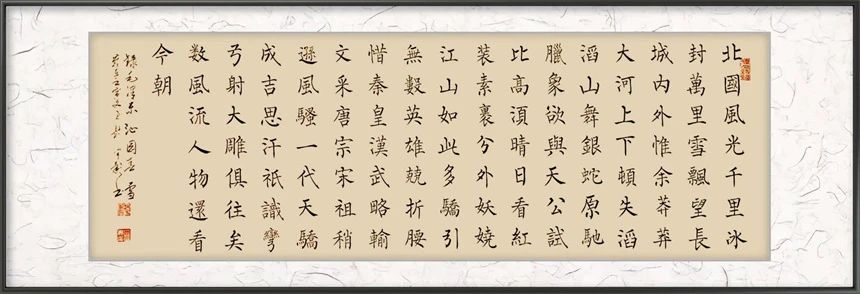 北國風光千里冰
封萬里雪飄望長
城內外惟余莽莽
大河上下頓失滔
滔山舞銀蛇原馳
臘象欲與天公試
比高須晴日看紅
装素裹分外妖嬈
江山如此多驕引
無數英雄競折腰
惜秦皇漢武略輸
文采唐宗宋祖稍
遜風騷一代天驕
成吉思汗祇識彎
弓射大雕俱往矣
數風流人物還看
今朝
錄毛澤東沁園春雪